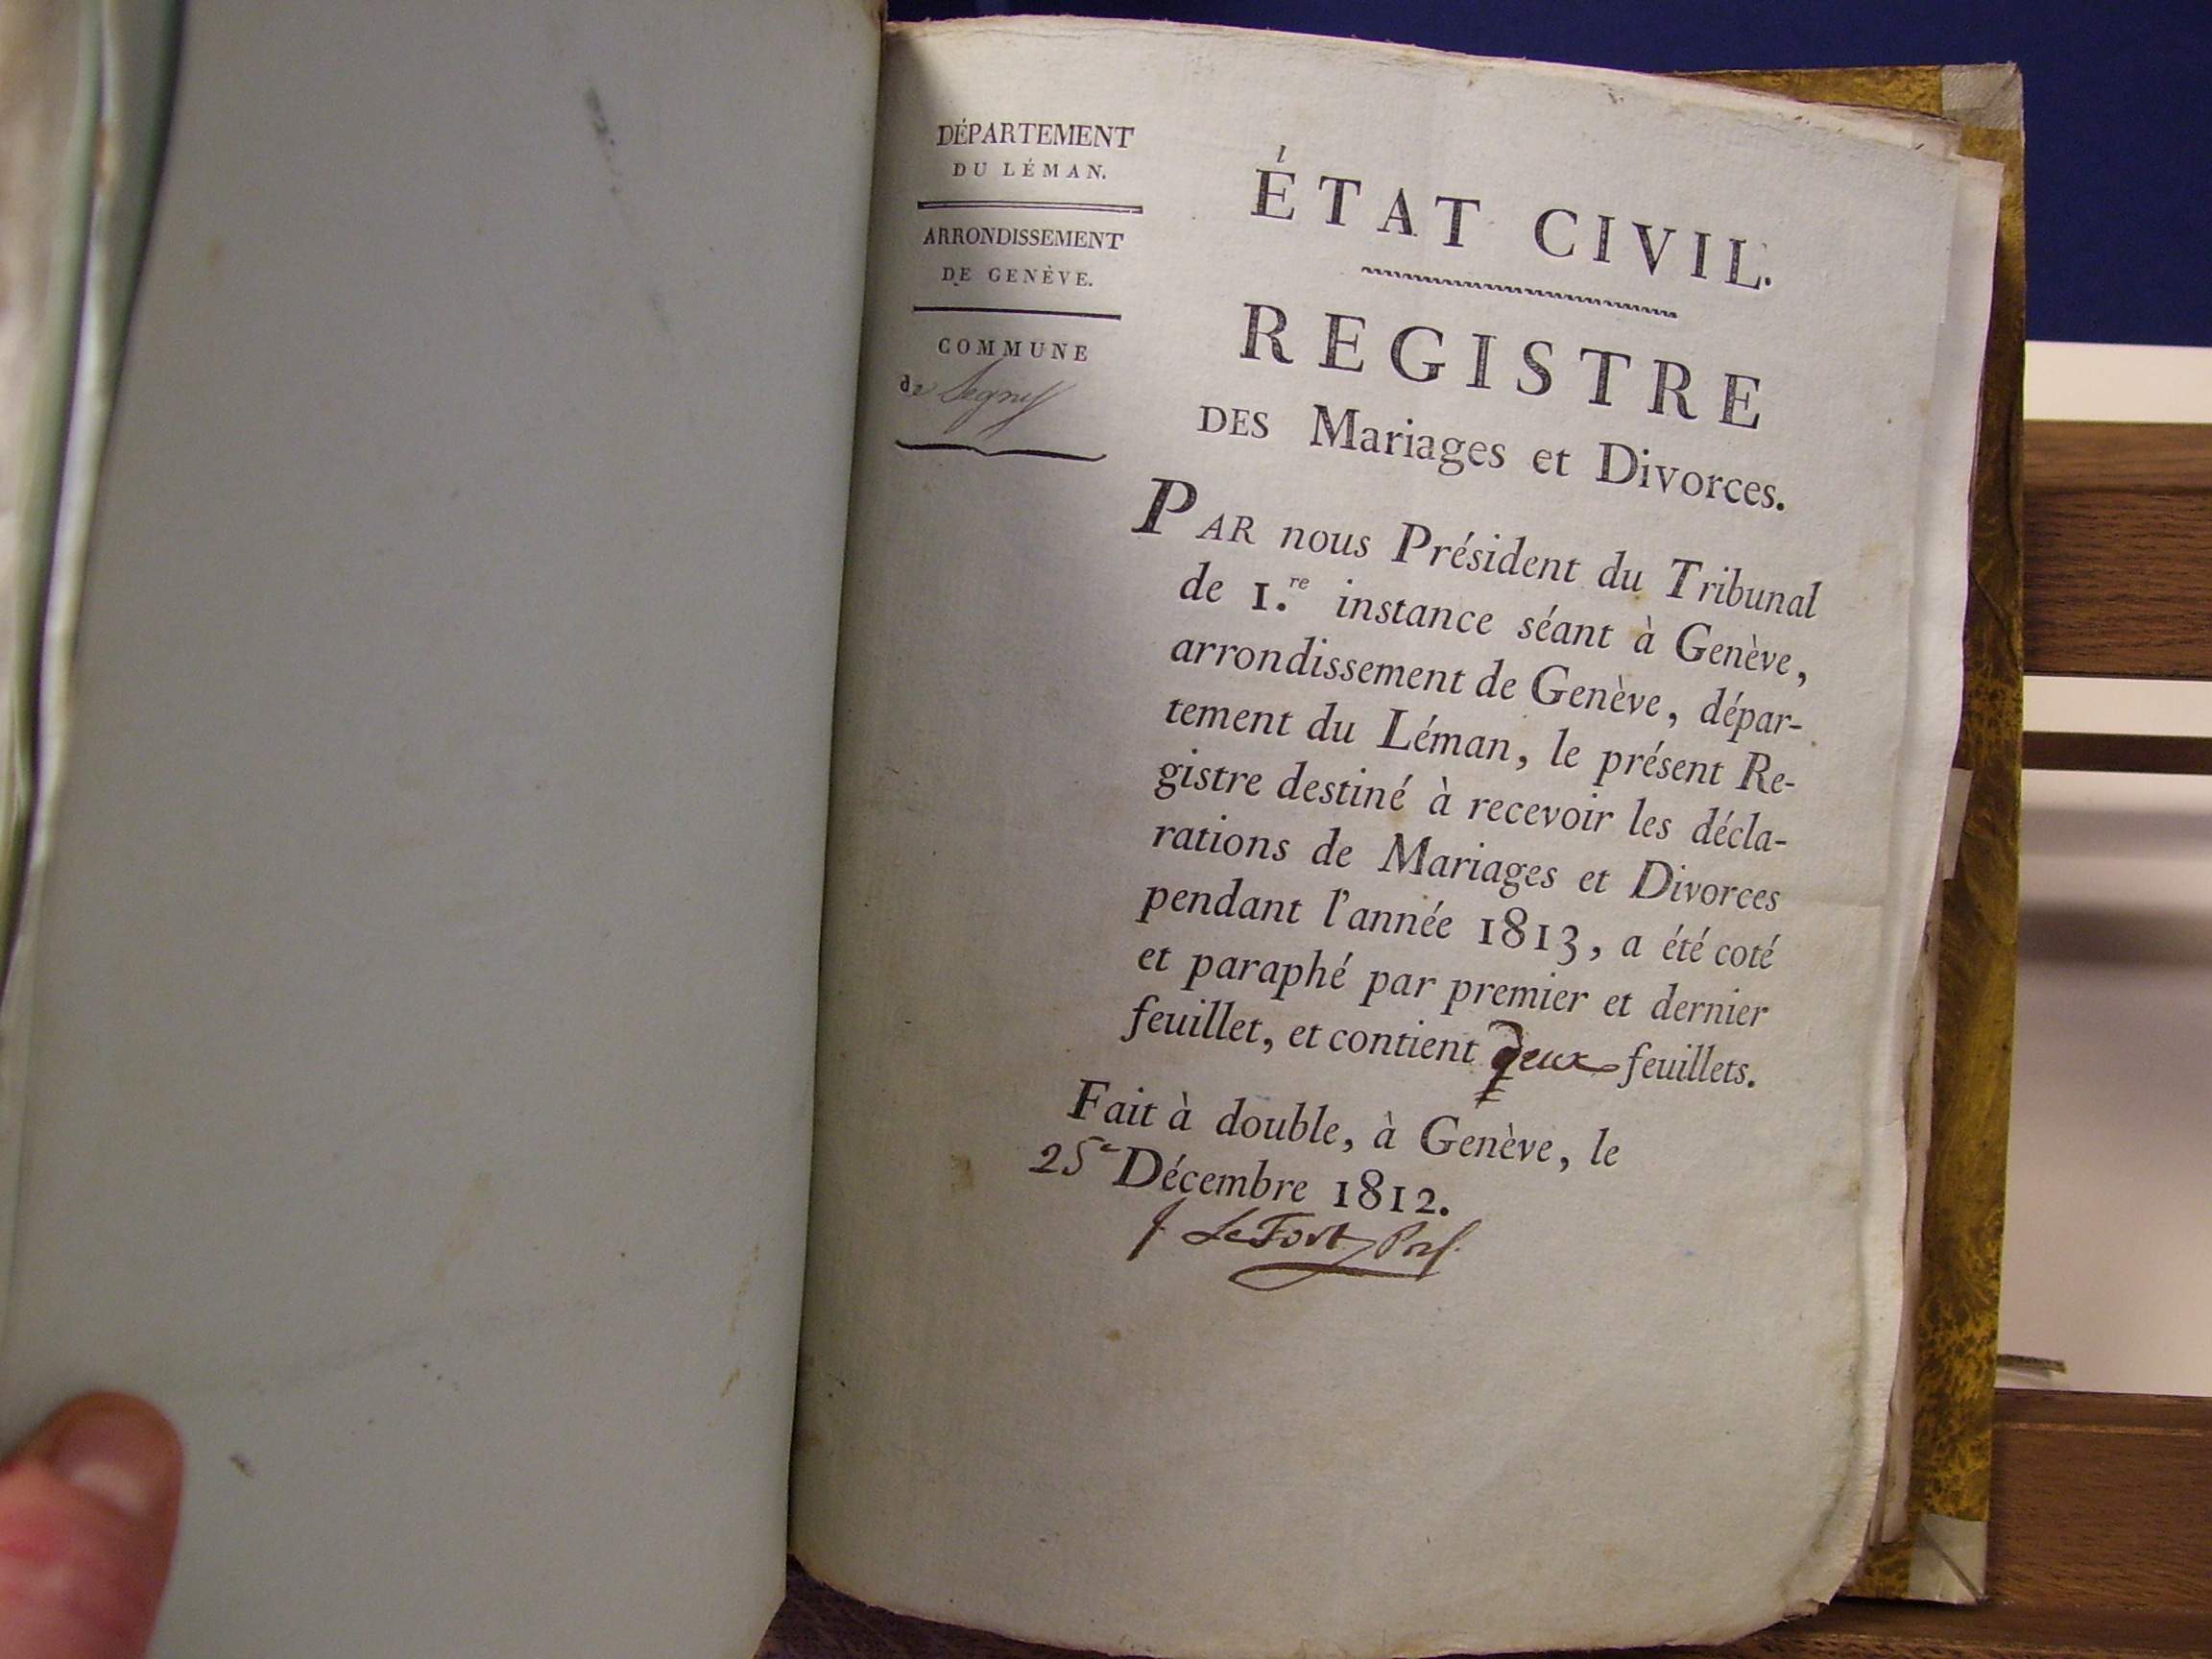 DÉPARTEMENT
DU LÉMAN.
ARRONDISSEMENT
DE GENÈVE.
COMMUNE
de Segny
ÉTAT CIVIL.
REGISTRE
DES Mariages et Divorces.
PAR nous Président du Tribunal
de 1.re instance séant à Genève,
arrondissement de Genève, dépar-
tement du Léman, le présent Re-
gistre destiné à recevoir les décla-
rations de Mariages et Divorces
pendant l'année 1813, a été coté
et paraphé par premier et dernier
feuillet, et contient deux feuillets.
Fait à double, à Genève, le
25e Décembre 1812.
LeFort